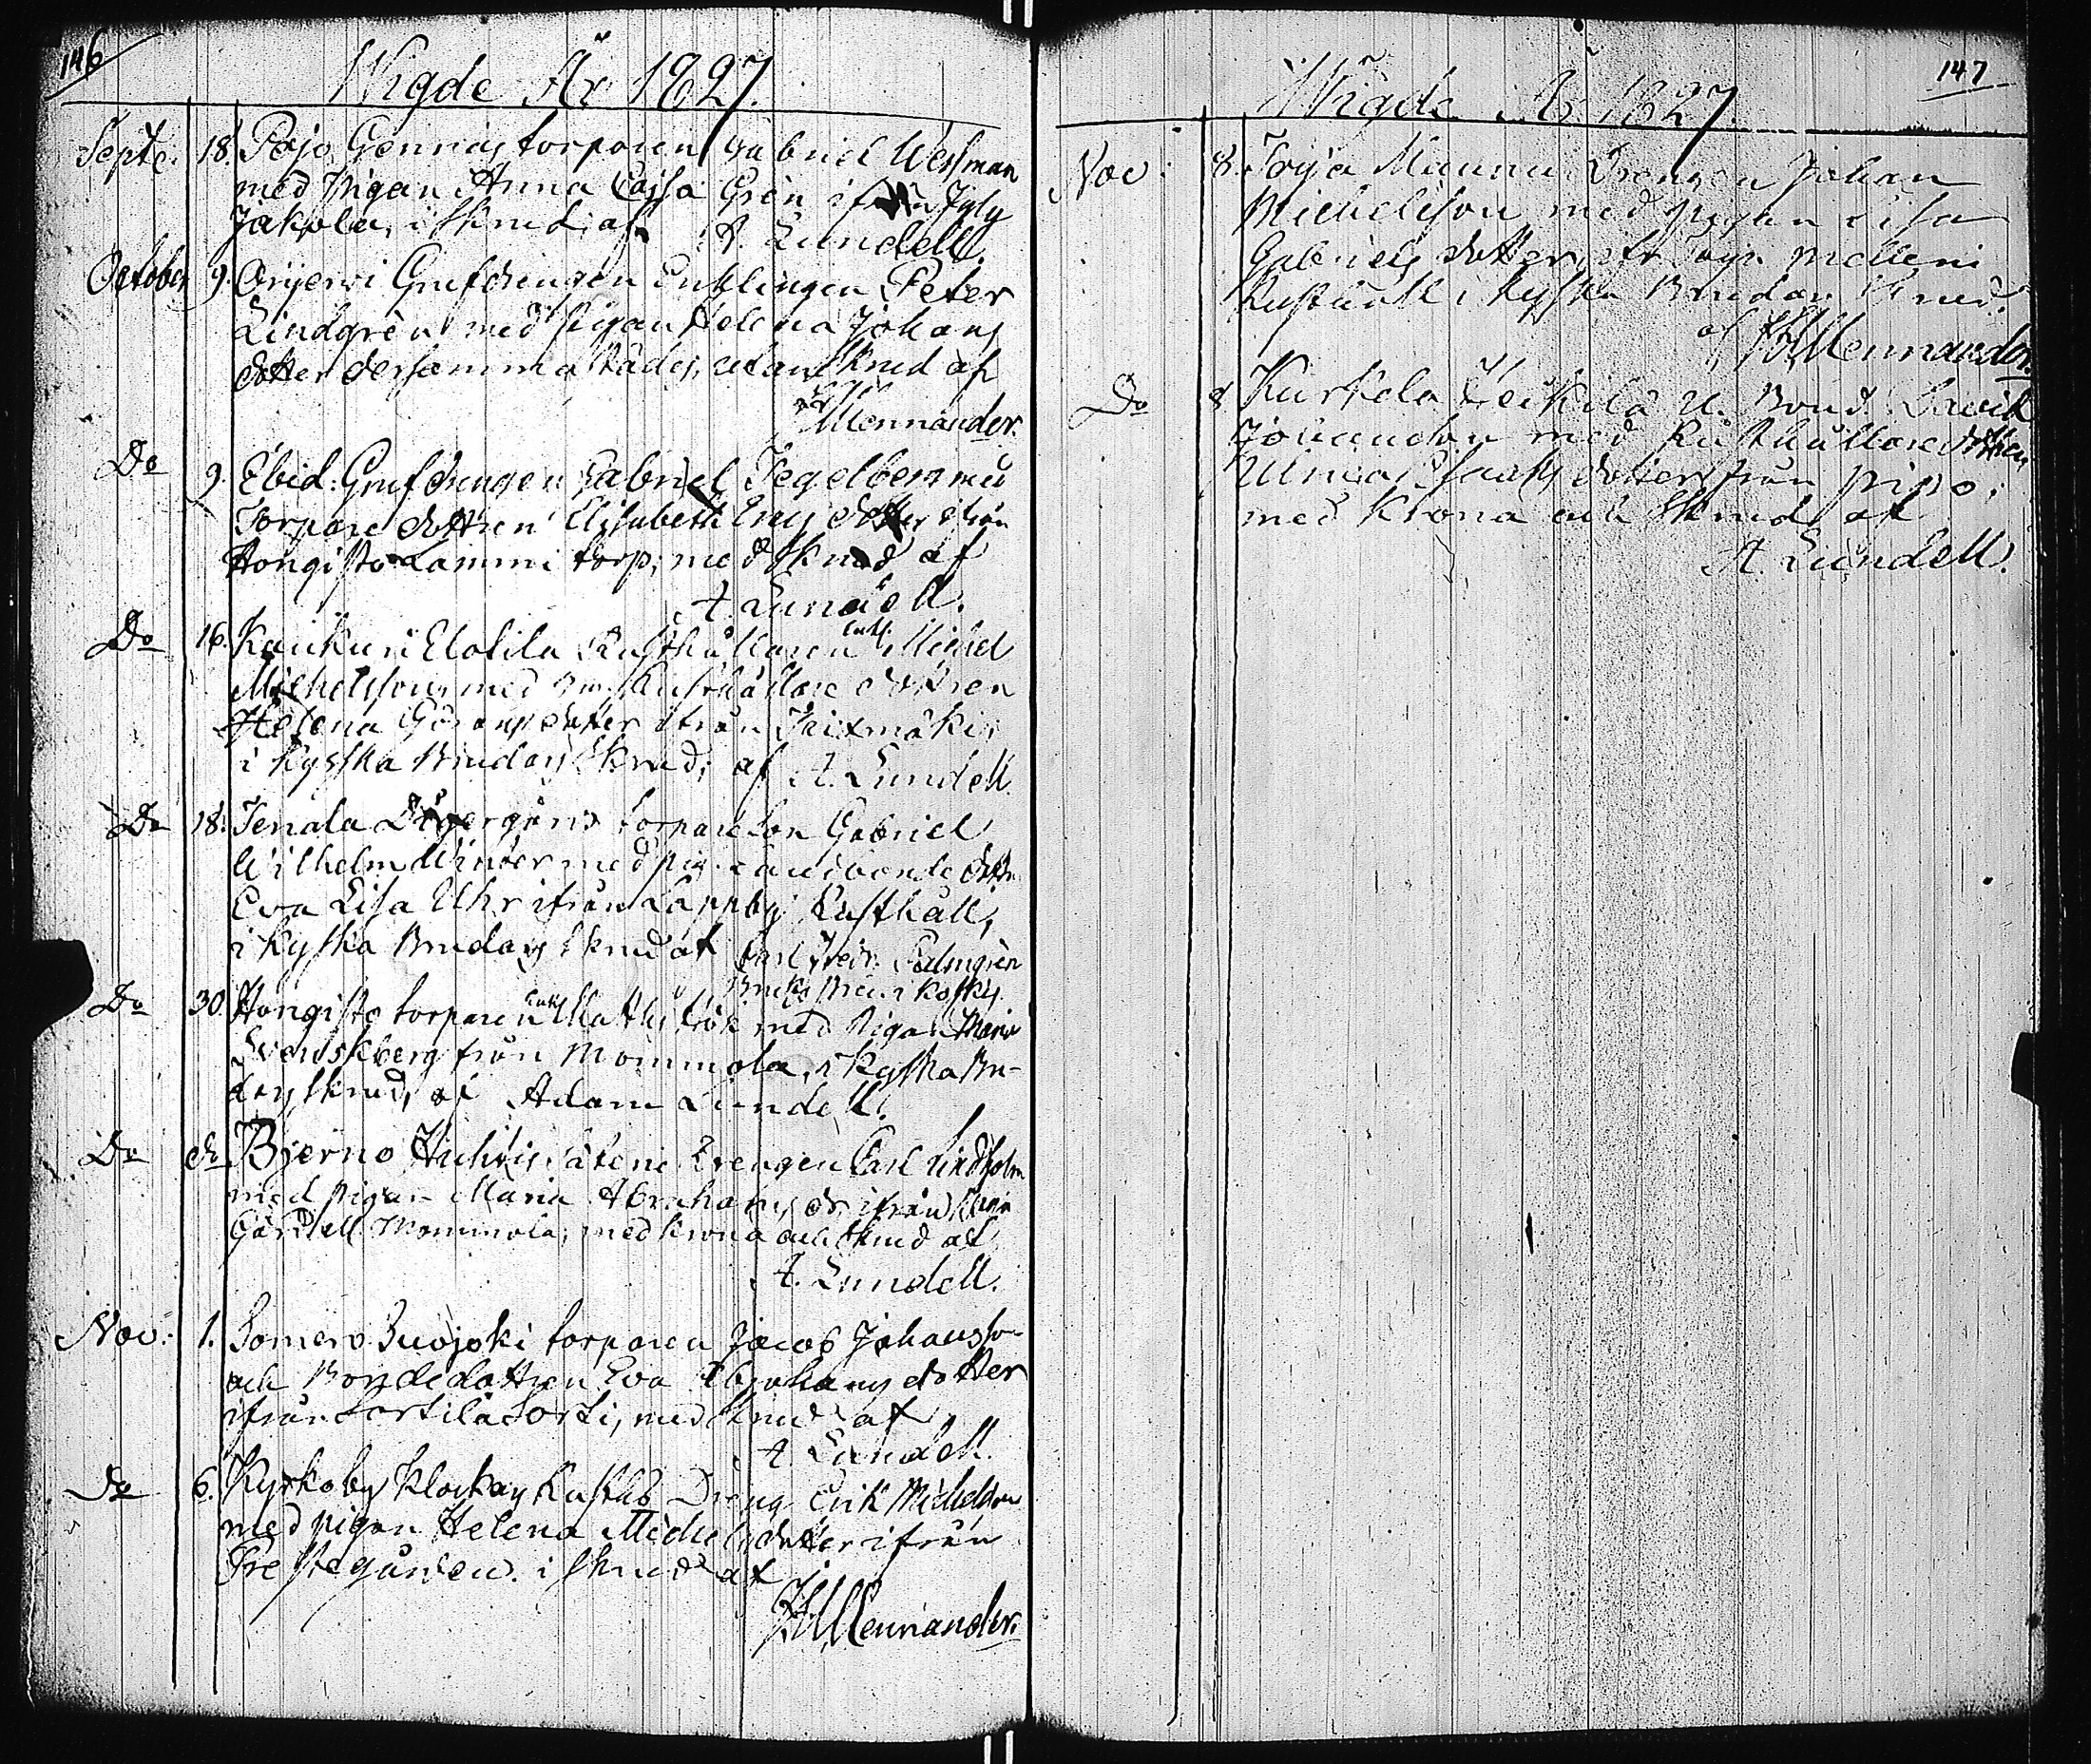 146
Wigde År 1827.
Septe. 18. Pojo torparen Gabriel Wessman
med Pigan Anna Cajsa Grén ifrån
Jakola, i Skrud, af A. Lundell.
October 9. Orijerwi Grufdrengen Enklingen Peter
Lindgrén med Pigan Helena Johans
dotter dersammastädes, utan Skrud af
Mennander.
Do 9. Ebid: Grufdrengen Gabriel Tegelberg med
Torpare dottren Elisabeth Erics dotter ifrån
Hongisto Lammi torp, med Skrud af
A. Lundell.
Do 16. Kaukuri Elolila Rusthållaren Enkl. Michel
Michelsson, med Rusthållare dottren
Helena Görans dotter ifrån
i kyska Brudars Skrud; af A. Lundell.
Do 18. Tenala torpare Son Gabriel
Wilhelm Winter med pig. Landbonde dottr.
Eva Lisa Uhr ifrån Lappby Rusthåll,
i kyska Brudars Skrud af Carl Fredr. Palmgrén
Bruks
Do 30. Hongisto torparen Enkl. Matts med Pigan Maria
Svenskberg från Mommola, i kyska Bru-
dars skrud, af Adam Lundell.
Do do Bjerno Drengen Carl Lindholm
med pigan Maria Abrahams dr. ifrån
Mommola, med krona och Skrud af
A. Lundell.
Nov: 1. Somero Suojoki torparen Jacob Johansson
och Bondedottren Eva dotter
ifrån Sortila Sorti, med Skrud af
A. Lundell.
Do 6. Kyrkoby Klockars Rusth. Dreng Erik Michelsson
med pigan Helena Michelsdotter ifrån
Prestegården. i Skrud af
Mennander.
147
Wigde År 1827.
Nov: 8. Maunu Drengen Johan
Michelsson med pigan Lisa
Gabriels dotter, ifr.
Rusthåll i kyska Brudars Skrud.
af Mennander.
Do 8 Kurkela Heikilä U. Bond. David
Johansson med Rusthållare dottren
Ulrica Isaacs dotter från Pipo,
med Krona och Skrud af
A. Lundell.